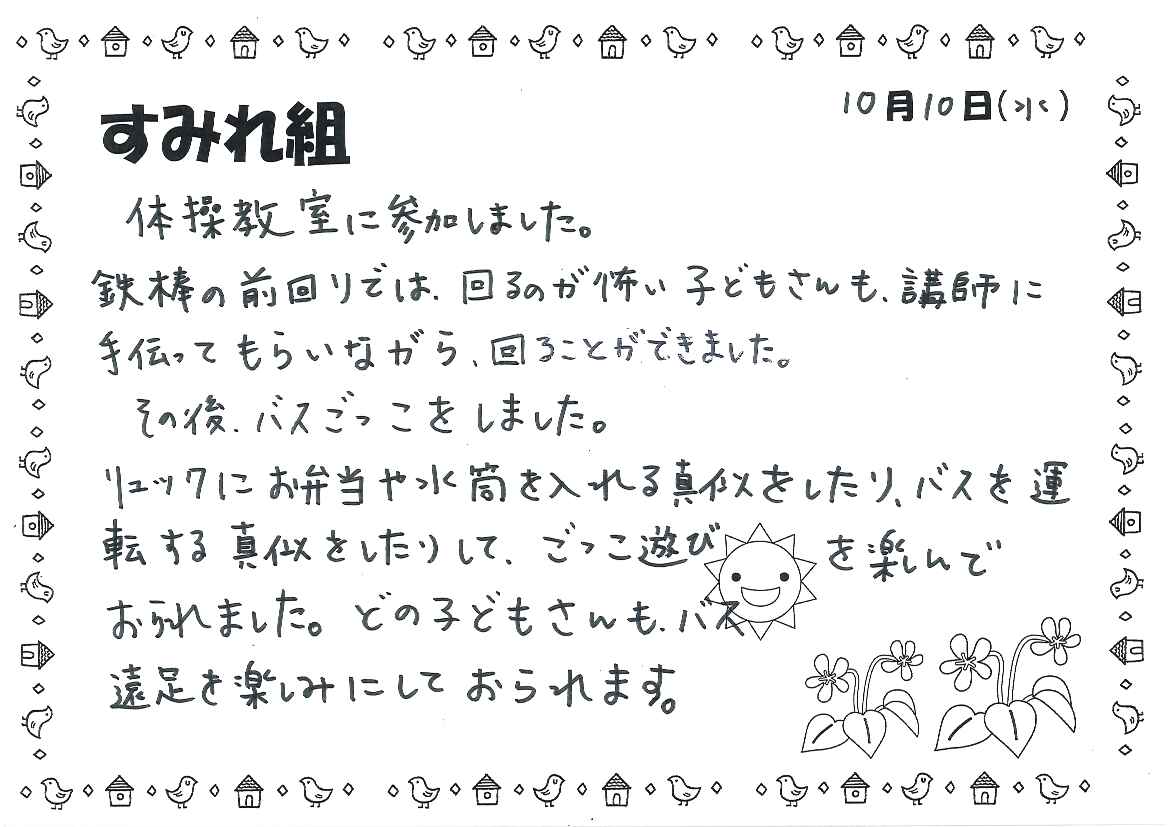 10月10日(水)
すみれ組
体操教室に参加しました。
鉄棒の前回りでは、回るのが怖い子どもさんも、講師に
手伝ってもらいながら、回ることができました。
その後、バスごっこをしました。
リュックにお弁当や水筒を入れる真似をしたり、バスを運
転する真似をしたりして、ごっこ遊びを楽しんで
おられました。どの子どもさんも、バス
遠足を楽しみにしておられます。